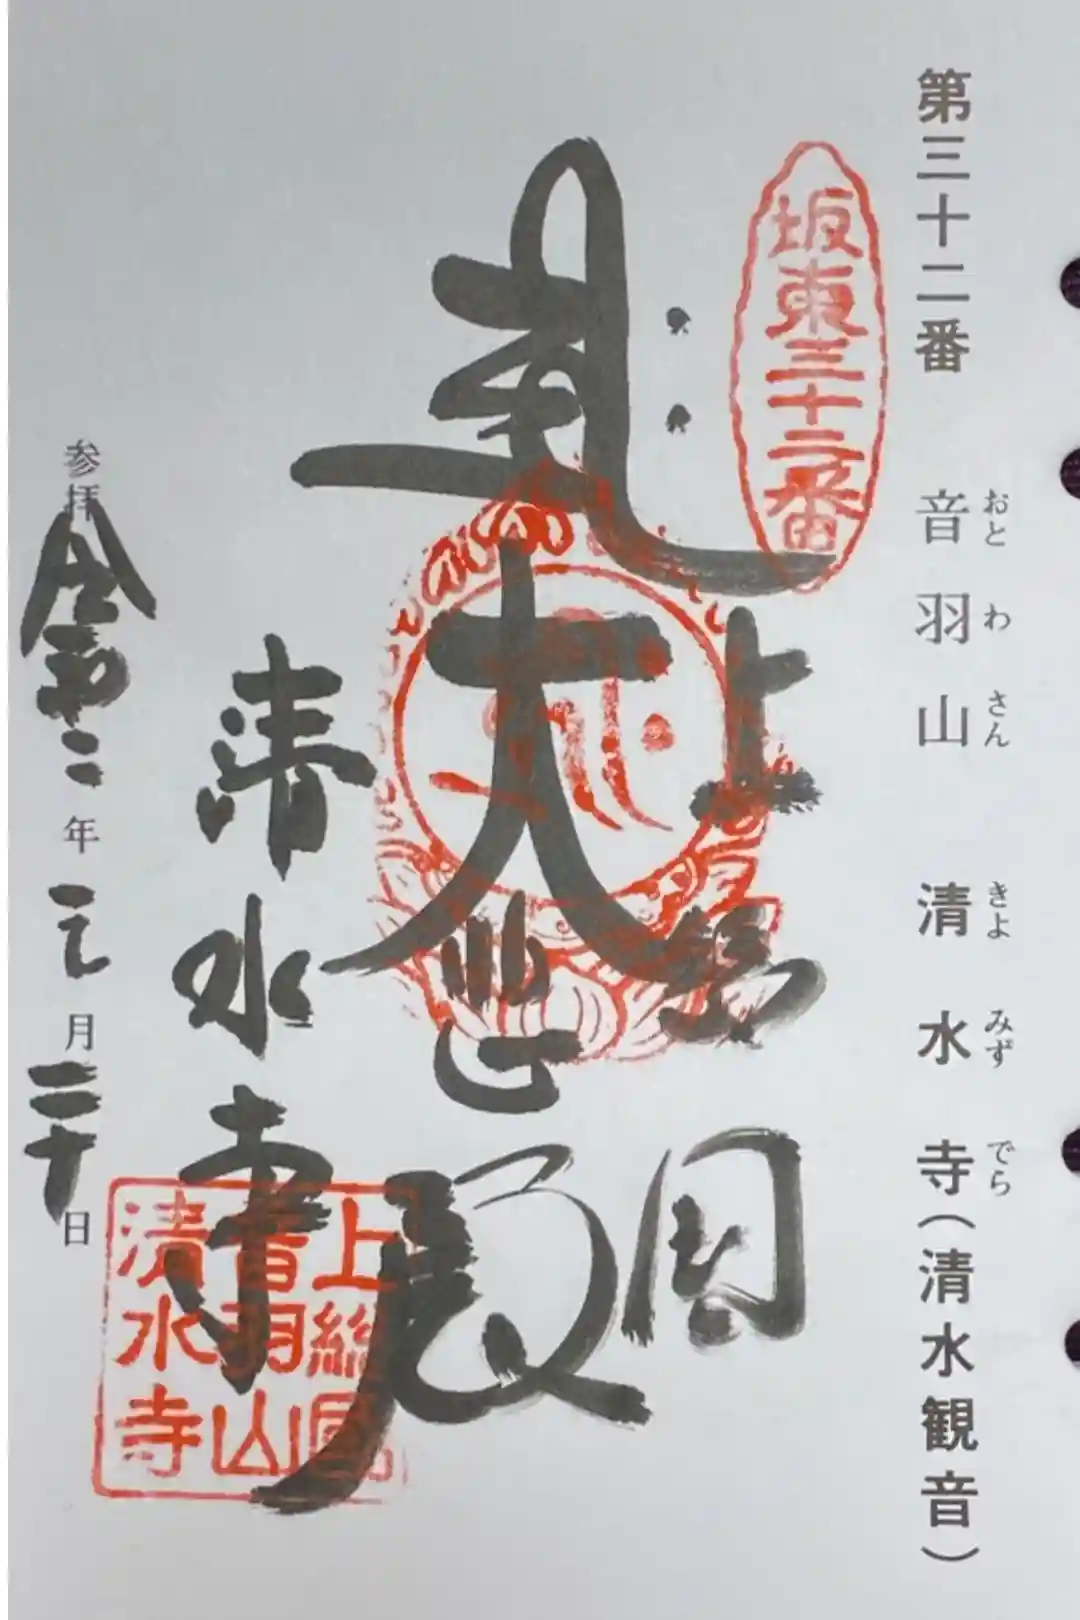 第三十二番 音羽山 清水寺(清水観音)
おとわさん きよみずでら
坂東三十二番
上総国
大悲殿
清水寺
上総国
音羽山
清水寺
参拝 令和二年元月二十日